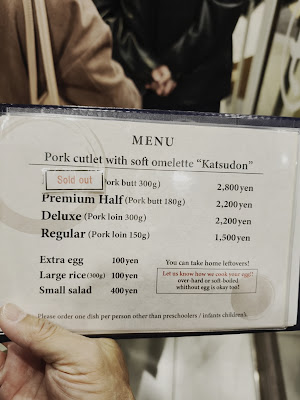 MENU
Pork cutlet with soft omelette “Katsudon”
Sold out (Pork butt 300g) 2,800yen
Premium Half (Pork butt 180g) 2,200yen
Deluxe (Pork loin 300g) 2,200yen
Regular (Pork loin 150g) 1,500yen
Extra egg 100yen
Large rice (300g) 100yen
Small salad 400yen
You can take home leftovers!
Let us know how we cook your egg!!
over-hard or soft-boiled
whithout egg is okay too!
Please order one dish per person other than preschoolers / infants children's